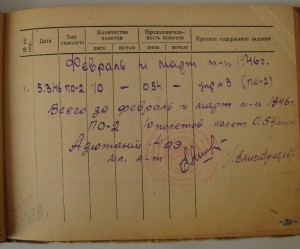 №№ по пор.
Дата
Тип самолета
Количество полетов
Продолжительность полетов
Краткое содержание задания
днем
ночью
днем
ночью
Февраль и март м-ц 1946г.
1. 5.3.46 ПО-2 10 — 0.54 — упр 3 (ПО-2)
Всего за февраль и март м-ц 1946г.
ПО-2 10 полетов налет 0.54 мин.
Адъютант АЭ
мл. л-т